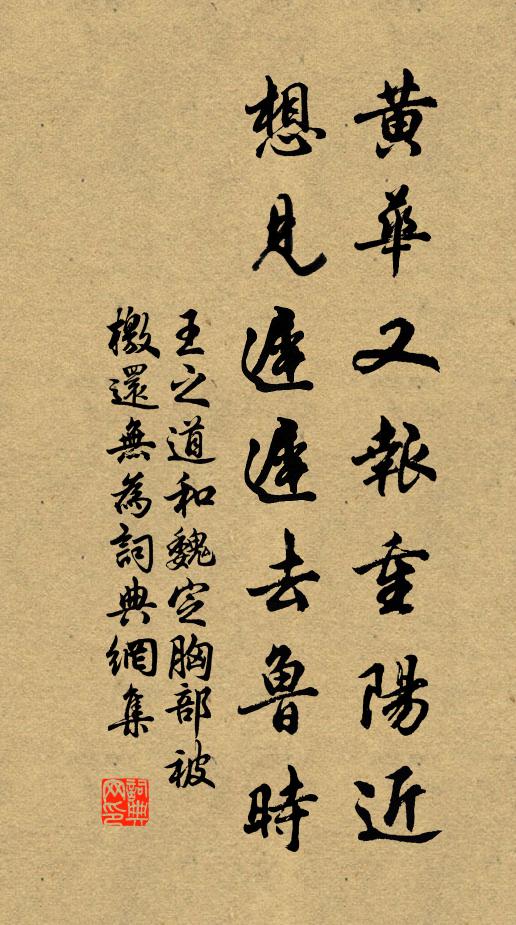 黃華又報重陽近
想見遲遲去魯時
王之道和魏定胸部被
檄還無為詞典網集
詞典网印